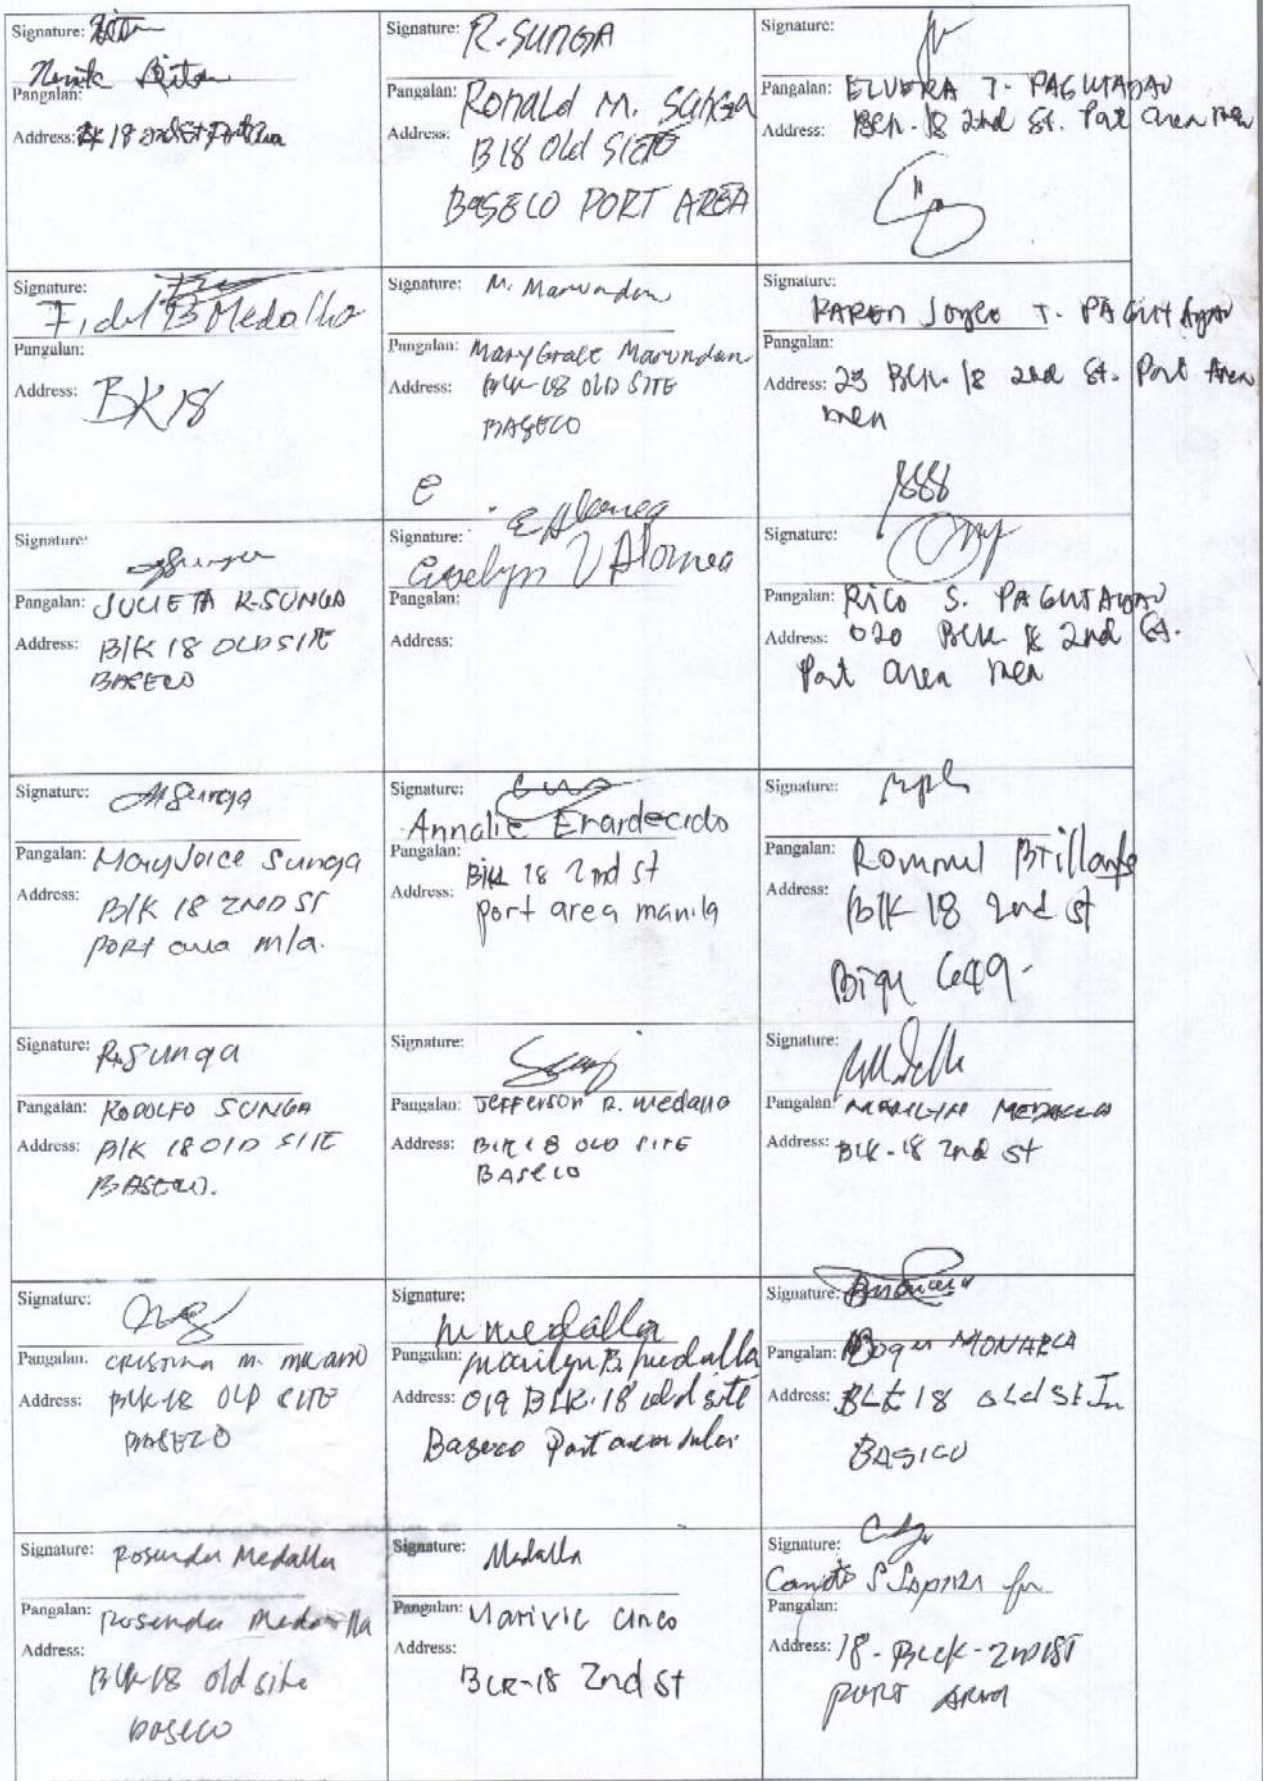 Signature:
Pangalan:
Address: BK 18 2nd St Port Area
Signature: R. SUNGA
Pangalan: Ronald M. SUNGA
Address: B18 Old SITE
BASECO PORT AREA
Signature:
Pangalan: ELVERA T. PAGUTAYAO
Address: Bck. 18 2nd St. Port Area
Signature:
Fidel B Medalla
Pangalan:
Address: BK 18
Signature: M. Marundan
Pangalan: Mary Grace Marundan
Address: BLK-18 OLD SITE
BASECO
Signature:
KAREN Joyce T. PAGUTAYAO
Pangalan:
Address: 23 Bck. 18 2nd St. Port Area
Signature: Sunga
Pangalan: JULIETA R. SUNGA
Address: Blk 18 OLD SITE
BASECO
Signature:
Pangalan:
Address:
Signature:
Pangalan: RICO S. PAGUTAYAO
Address: 020 Bck. 18 2nd St.
Port area
Signature: MSunga
Pangalan: MaryJoice Sunga
Address: Blk 18 2ND ST
PORT area m/a.
Signature:
Annalie Enardecido
Pangalan:
Address: Blk 18 2nd st
port area manila
Signature:
Pangalan: Rommel Brillante
Address: Blk 18 2nd st
Brgy 649-
Signature: R.Sunga
Pangalan: RODOLFO SUNGA
Address: Blk 18 OLD SITE
BASECO.
Signature:
Pangalan: Jefferson R. medalla
Address: BLK 18 OLD SITE
BASECO
Signature:
Pangalan: MARILYN MEDALLA
Address: BLK-18 2nd st
Signature:
Pangalan: CRISTINA M.
Address: BLK-18 OLD SITE
BASECO
Signature: M medalla
Pangalan: Marilyn B. Medalla
Address: 019 BLK. 18 old site
Baseco Port area
Signature:
Pangalan: Roger MONARCA
Address: BLK 18 old
BASICO
Signature: Rosenda Medalla
Pangalan: Rosenda Medalla
Address:
Blk-18 old site
baseco
Signature: Medalla
Pangalan: Marivic Cinco
Address:
BLK-18 2nd st
Signature:
Pangalan:
Address: 18-Blck-2ND ST
PORT AREA